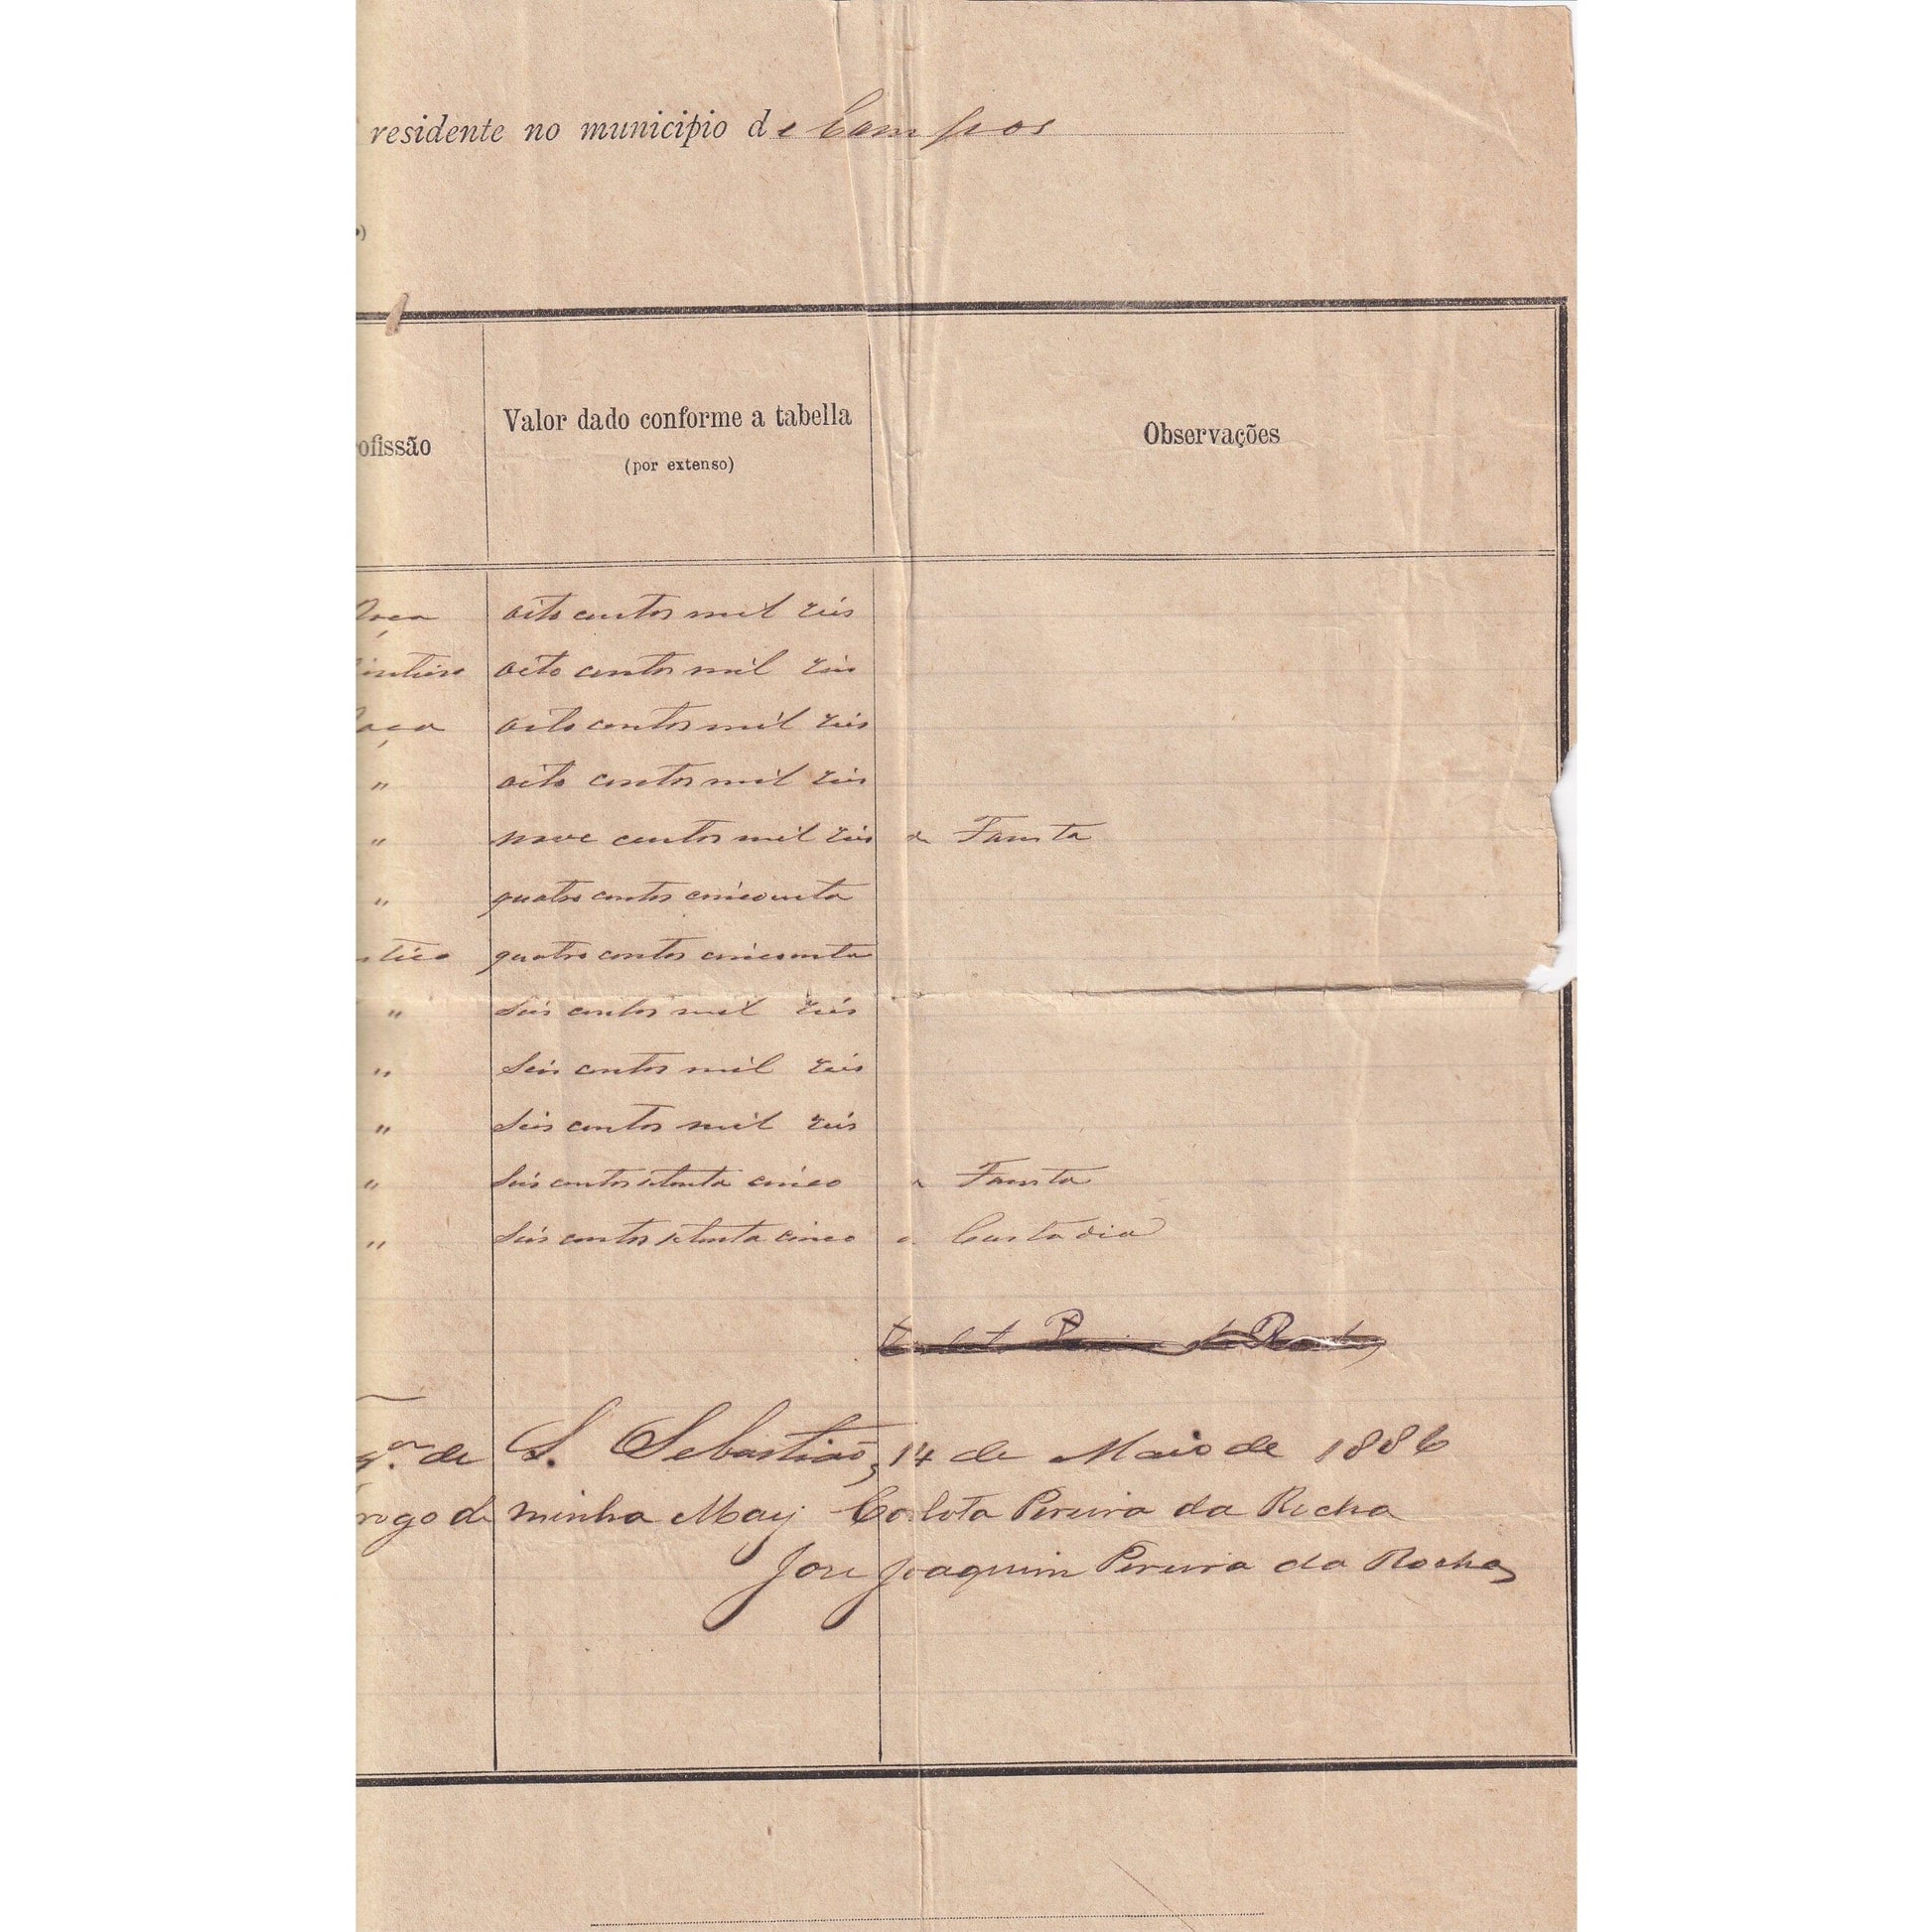 residente no municipio de Campos
ofissão
Valor dado conforme a tabella
(por extenso)
Observações
oito centos mil reis
oito centos mil reis
aça oito centos mil reis
" oito centos mil reis
" nove centos mil reis a Fausta
" quatro centos cincoenta
tico quatro centos cincoenta
" Seis centos mil reis
" Seis centos mil reis
" Seis centos mil reis
" Seis centos setenta cinco a Fausta
" Seis centos setenta cinco a Custodia
de S. Sebastião, 14 de Maio de 1886
rogo de minha May Carlota Pereira da Rocha
Jose Joaquim Pereira da Rocha